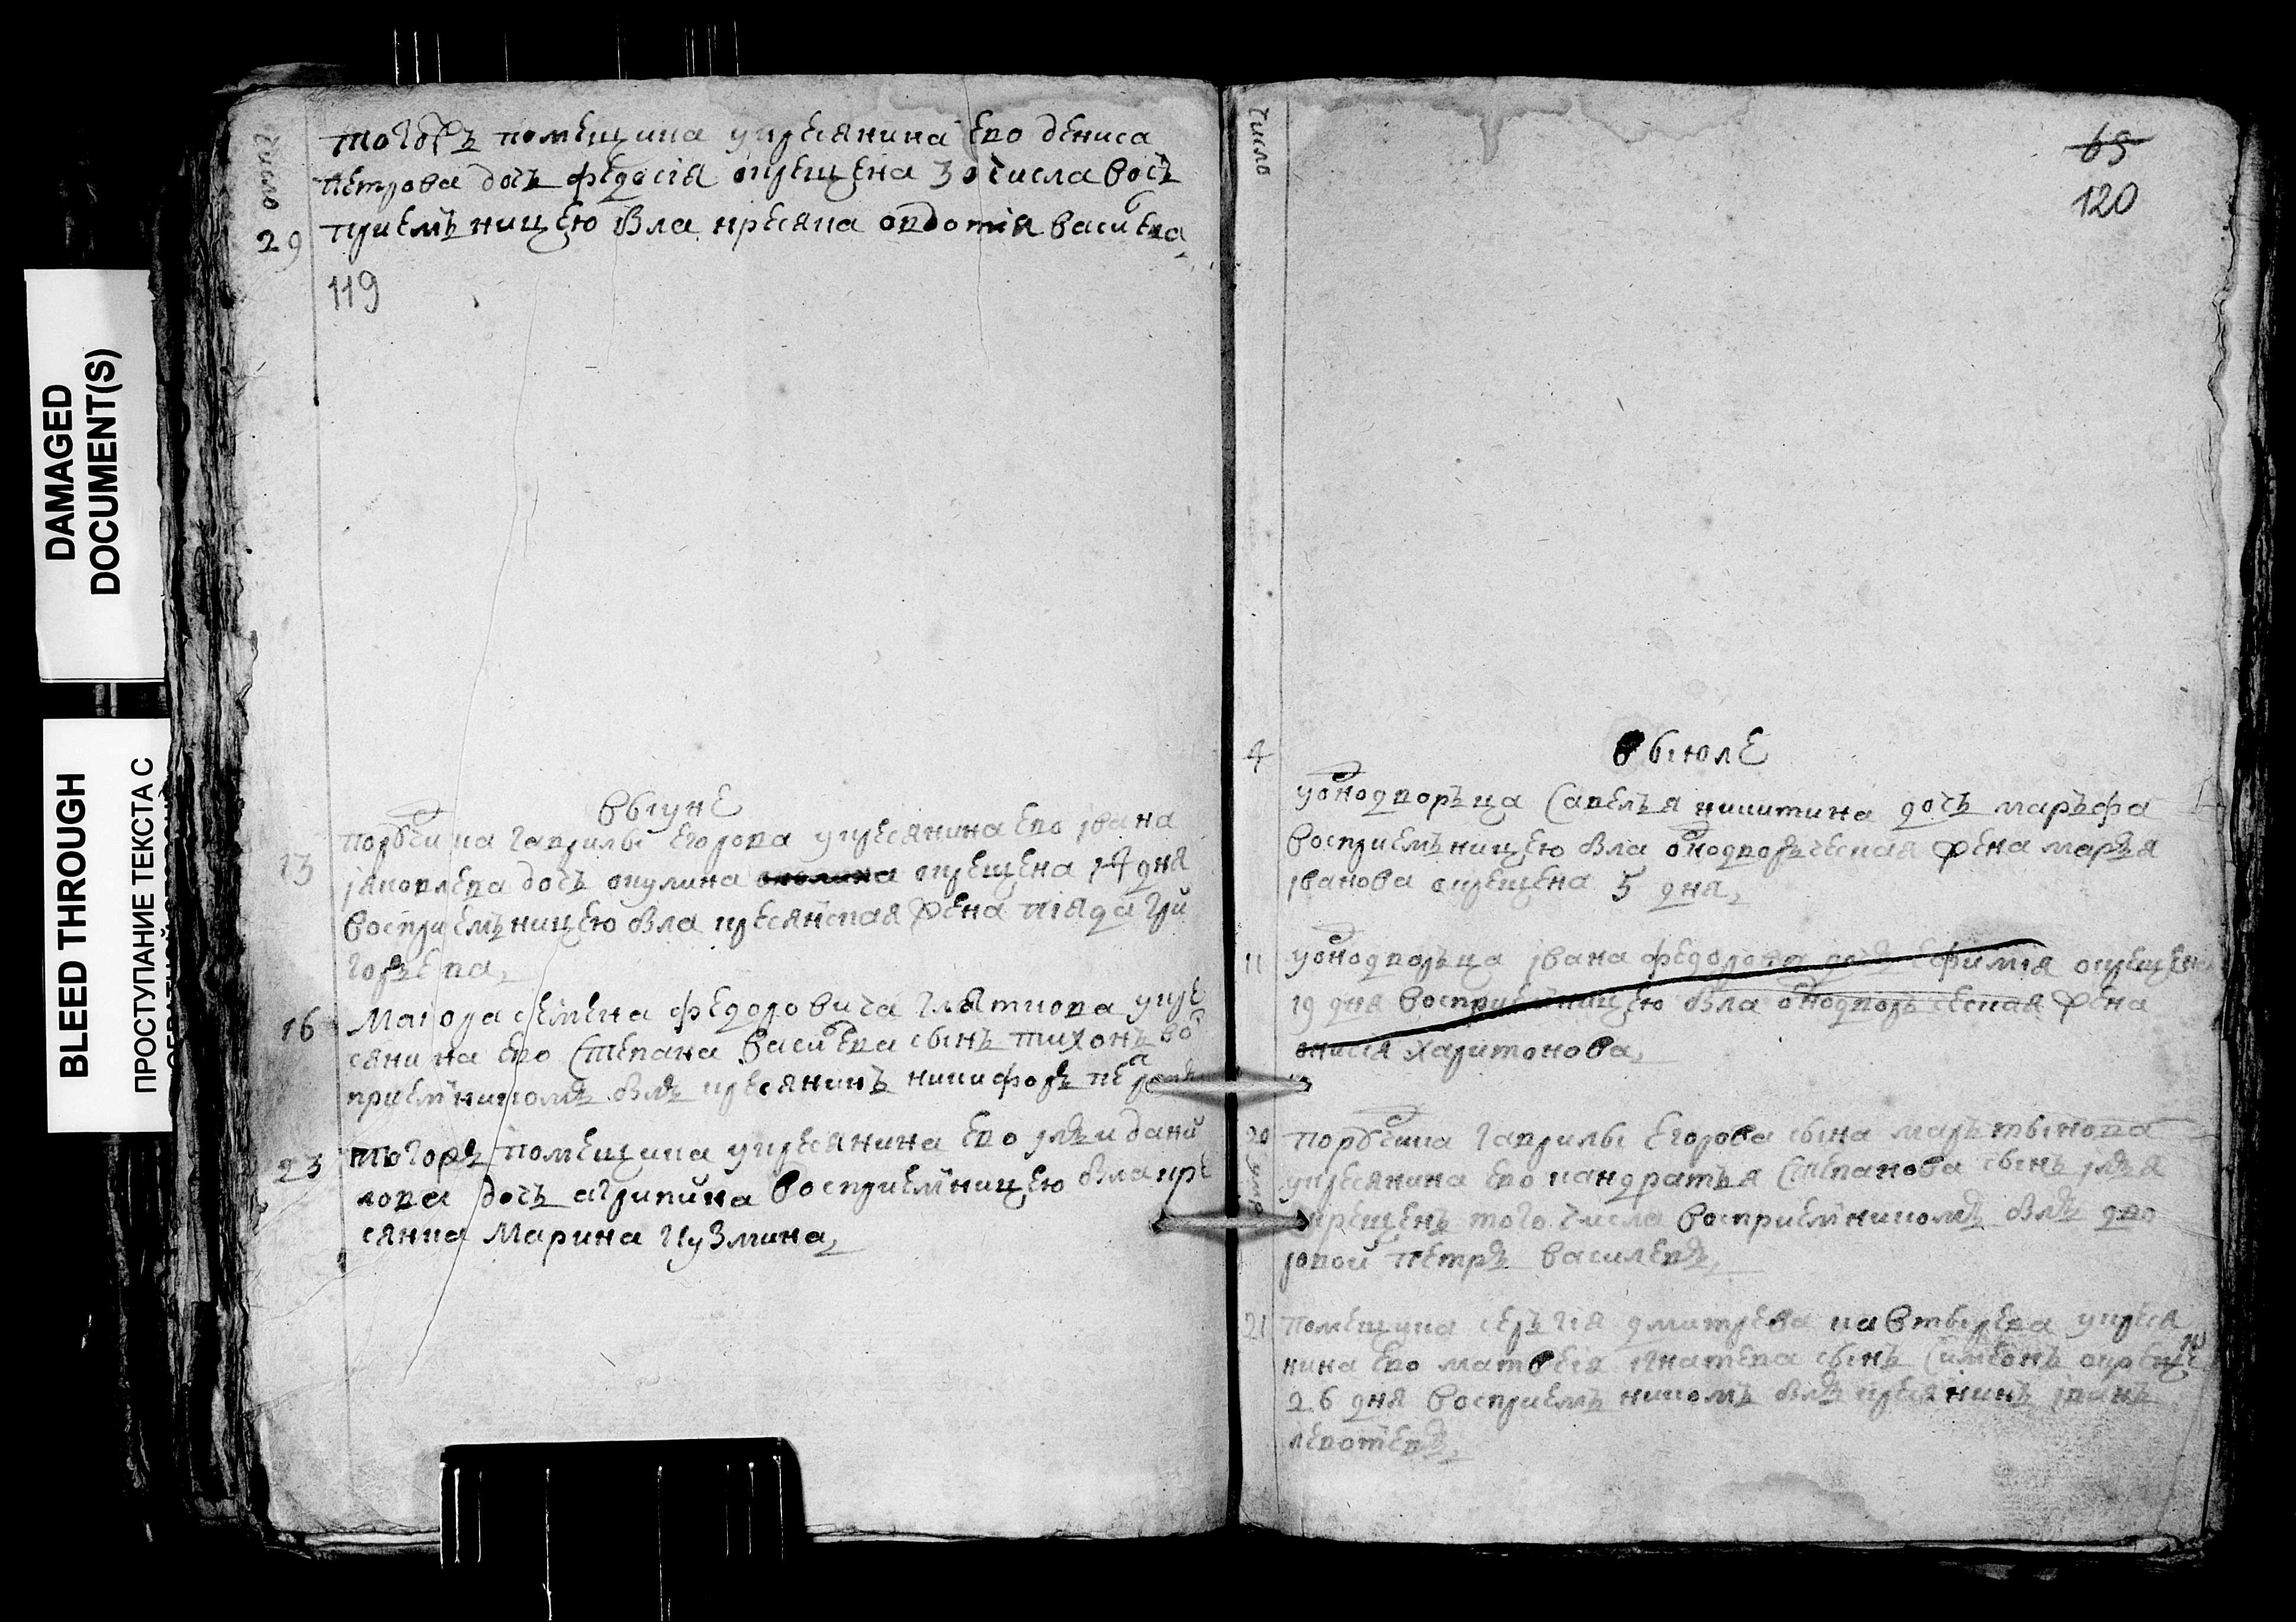 DAMAGED
DOCUMENT(S)
BLEED THROUGH
ПРОСТУПАНИЕ ТЕКСТА С
число
тогожъ помещика укресянина ево дениса
петрова дочь федосія окрещена 30 числа вос
приемъницею была кресянка овдотия василева
29
119
в іуне
13
порутчика гаврилы егорова укресянина ево івана
іяковлева дочь окулина окрещена 14 дня
восприемъницею была кресянская жена
горьева
16
маіора семена федоровича укре
сянина ево степана василева сынъ тихонъ вос
приемникомъ былъ кресянинъ никифоръ
23
тогожъ помещика укресянина ево данй
лова дочь агрипина восприемницею была кре
сянка марина кузмина
число
65
120
в іюле
4
уоднодворъца савелъя никитина дочь маръфа
восприемъницею была однодворъческая жена маръя
іванова окрещена 5 дня
11
уоднодворъца івана федорова дочь ефимія окрещена
19 дня восприемницею была однодворъческая жена
онисія харитонова
20
порутчика гаврилы егорова сына марътынова
укресянина ево кандратъя степанова сынъ илья
окрещенъ того числа восприемникомъ былъ дво
ровой петръ василевъ
21
помещика серъгія дмитрева укреся
нина ево матвея игнатева сынъ симеонъ окрещенъ
26 дня восприемъникомъ былъ кресянинъ іванъ